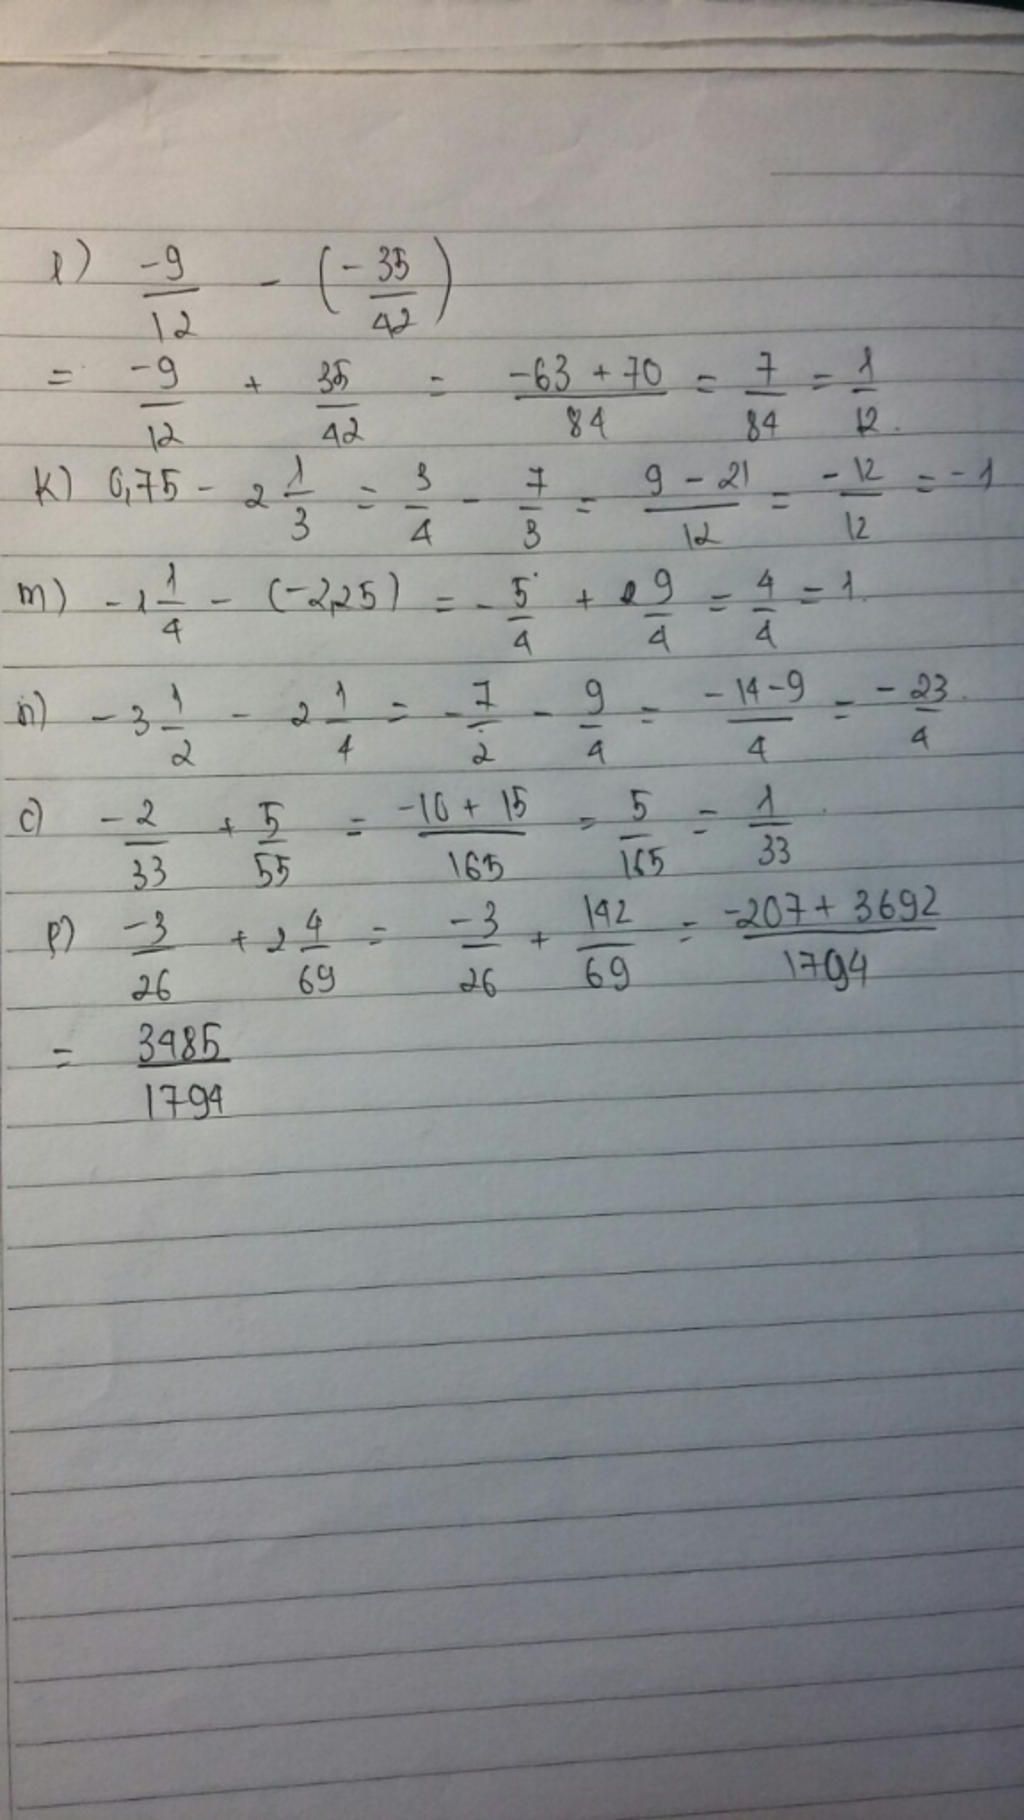 l) -9/12 - (-35/42)
= -9/12 + 35/42 = (-63 + 70)/84 = 7/84 = 1/12.
k) 0,75 - 2 1/3 = 3/4 - 7/3 = (9 - 21)/12 = -12/12 = -1
m) -1 1/4 - (-2,25) = -5/4 + 9/4 = 4/4 = 1.
n) -3 1/2 - 2 1/4 = -7/2 - 9/4 = (-14-9)/4 = -23/4.
o) -2/33 + 5/55 = (-10 + 15)/165 = 5/165 = 1/33.
p) -3/26 + 2 4/69 = -3/26 + 142/69 = (-207 + 3692)/1794
= 3485/1794